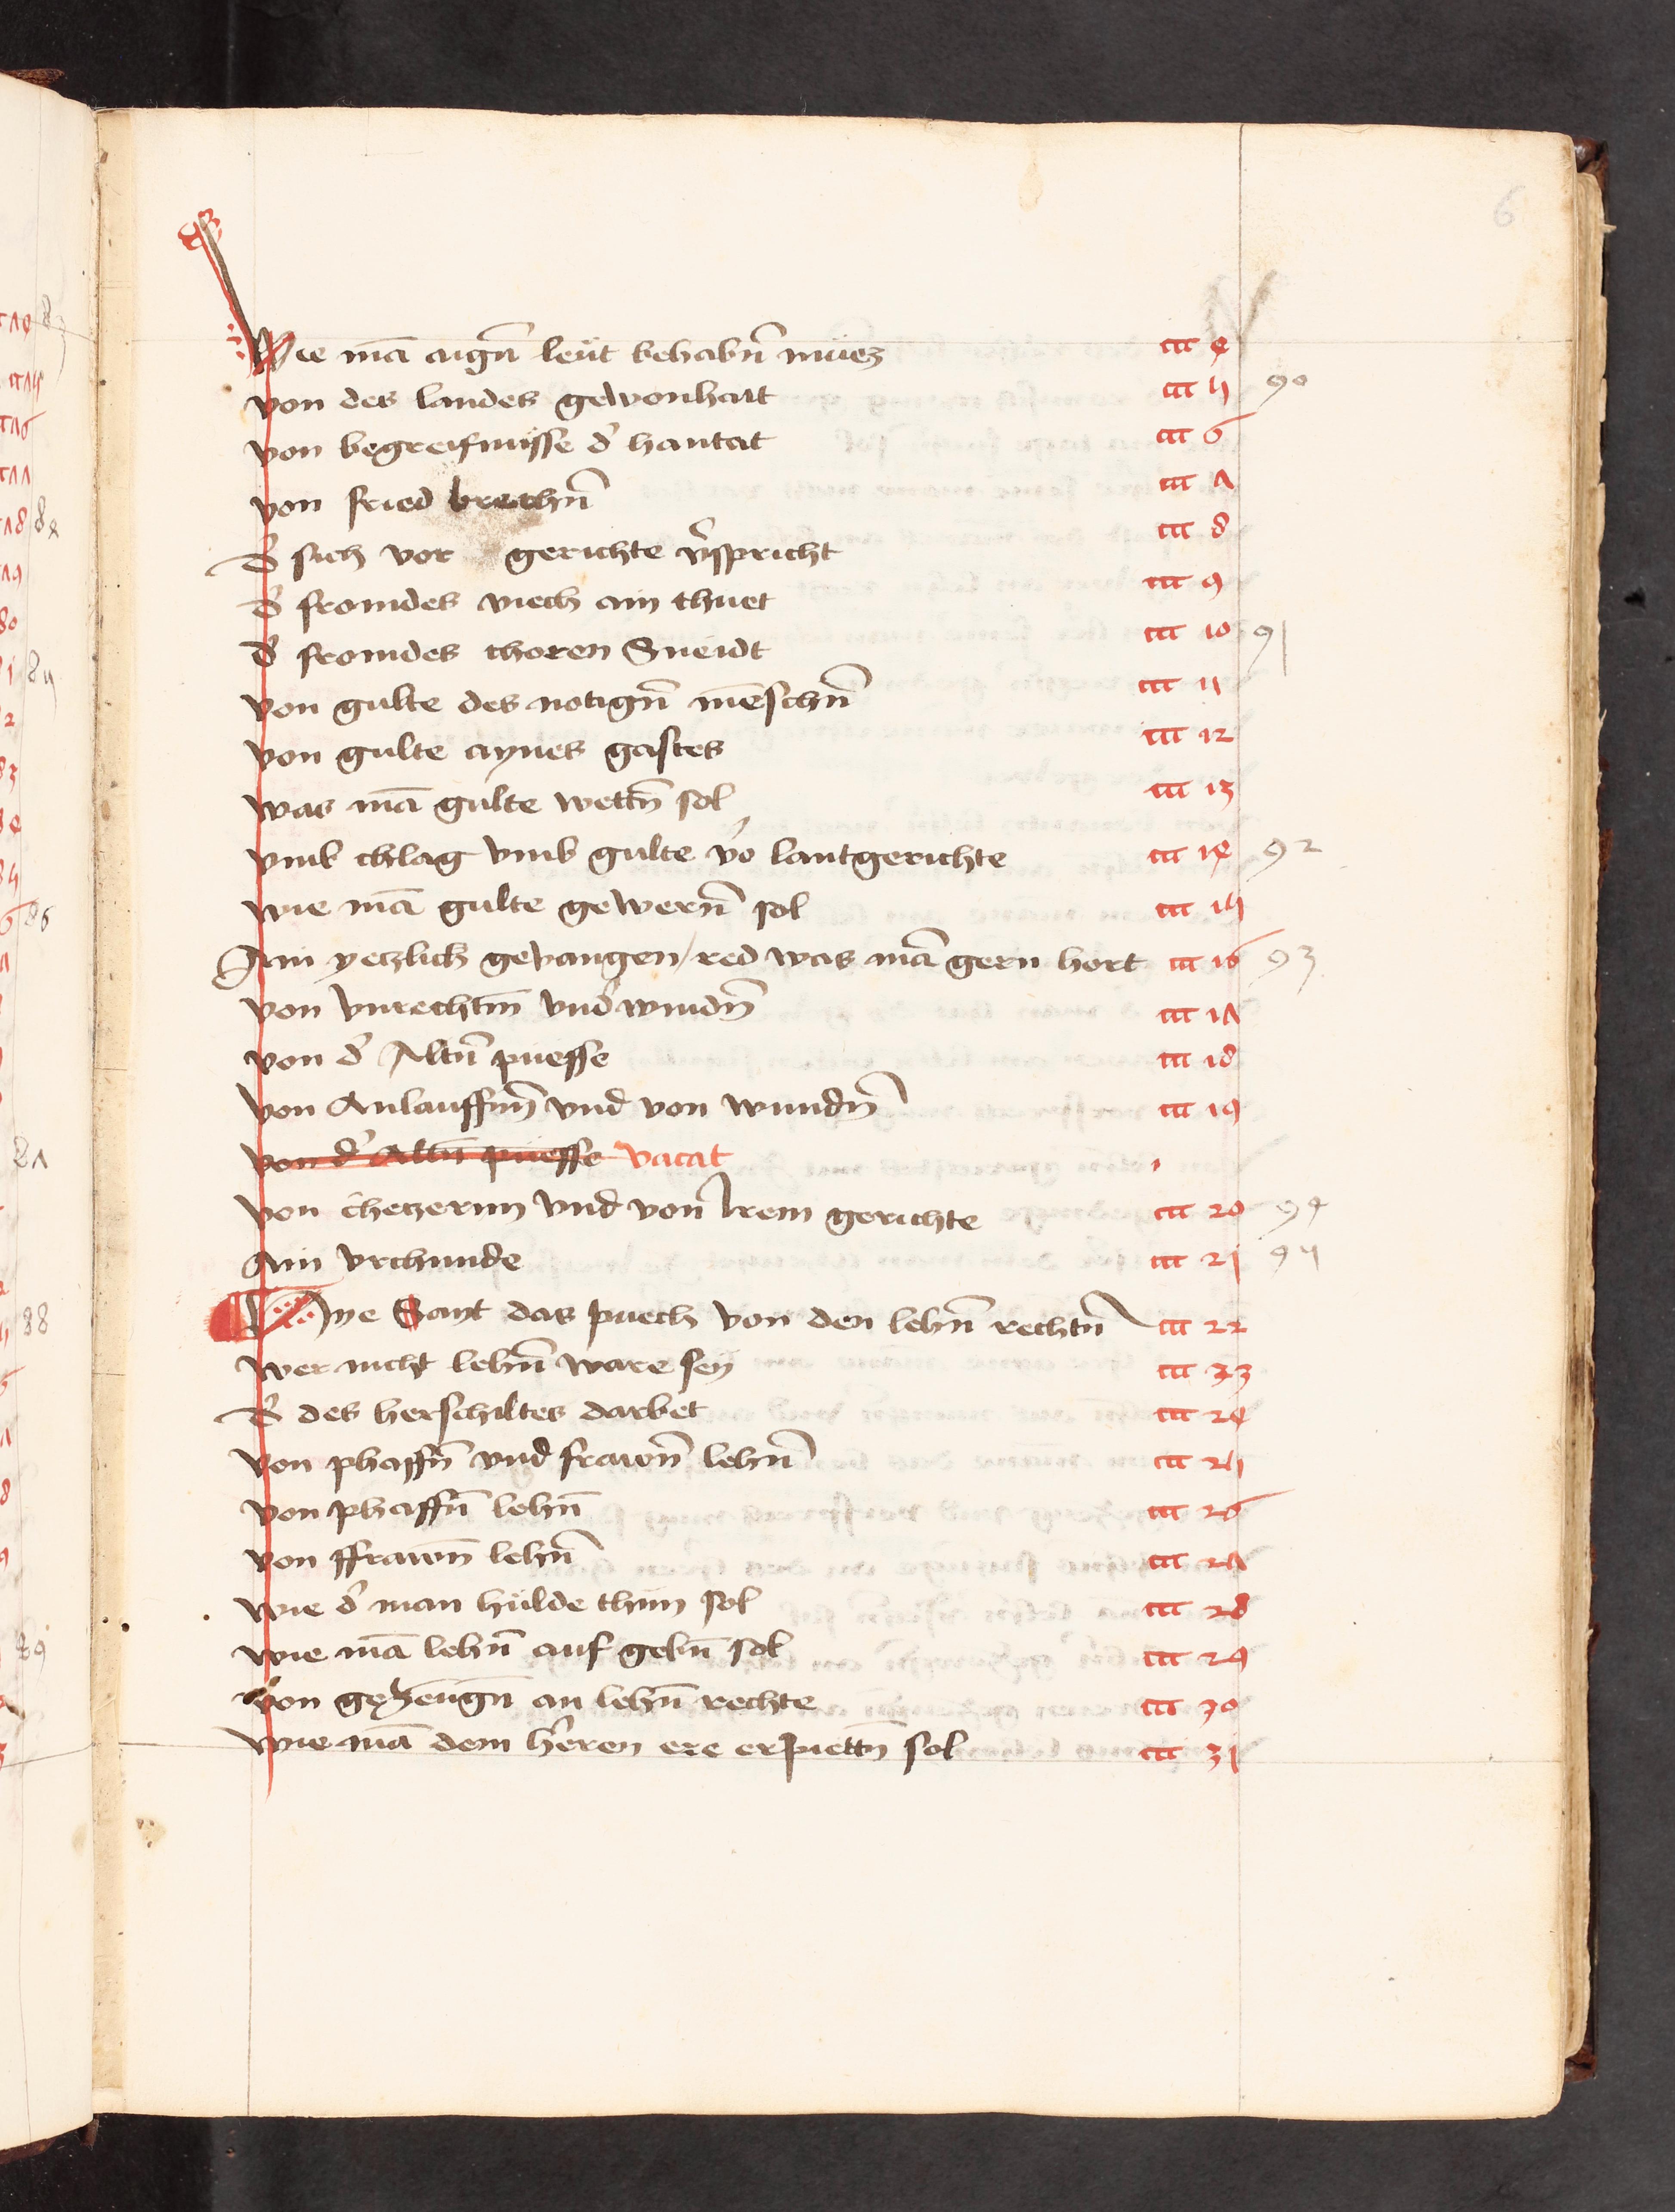 6
V
Wie mā aigñ leüt behabñ müez ccc 4
von des landes gewonhait ccc 5 90
von begreifnüsse d' hantat ccc 6
von fried brechñ ccc 7
d' sich vor gerichte v'spricht ccc 8
d' fromdes viech ain thuet ccc 9
d' fromdes choren Sneidt ccc 10 91
von gulte des notigñ mēschñ ccc 11
von gulte aynes gastes ccc 12
was mā gulte wettñ sol ccc 13
vmb chlag vmb gulte vō lantgerichte ccc 14 92
wie mā gulte gewerñ sol ccc 15
Ain yetzlich gevangen / red was mā gern hort ccc 16 93
von vnrechtm vnd'windñ ccc 17
von d' Altñ püesse ccc 18
von Anlauffñ vnd von wundñ ccc 19
von d' Altñ püesse vacat
von chetzernn vnd von Irem gerichte ccc 20 94
Ain vrchunde ccc 21 95
Hye Sayt das puech von den lehñ rechtñ ccc 22
wer nicht lehñ ware sey ccc 23
d' des herschiltes darbet ccc 24
von phaffñ vnd frawñ lehñ ccc 25
von phaffñ lehñ ccc 26
von ffrawñ lehñ ccc 27
wie d' man hülde thun sol ccc 28
wie mā lehñ auf gebñ sol ccc 29
von gezeugñ an lehñ rechte ccc 30
wie mā dem h'eren ere erpiettñ sol ccc 31